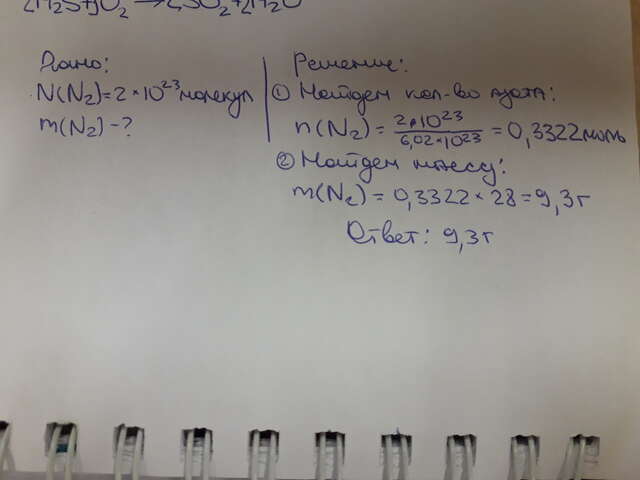 2H₂S+3O₂ → 2SO₂+2H₂O
Дано:
N(N₂)=2*10²³молекул
m(N₂)-?
Решение:
① Найдем кол-во азота:
n(N₂) = 2*10²³ / 6,02*10²³ = 0,3322моль
② Найдем массу:
m(N₂) = 0,3322*28=9,3г
Ответ: 9,3г